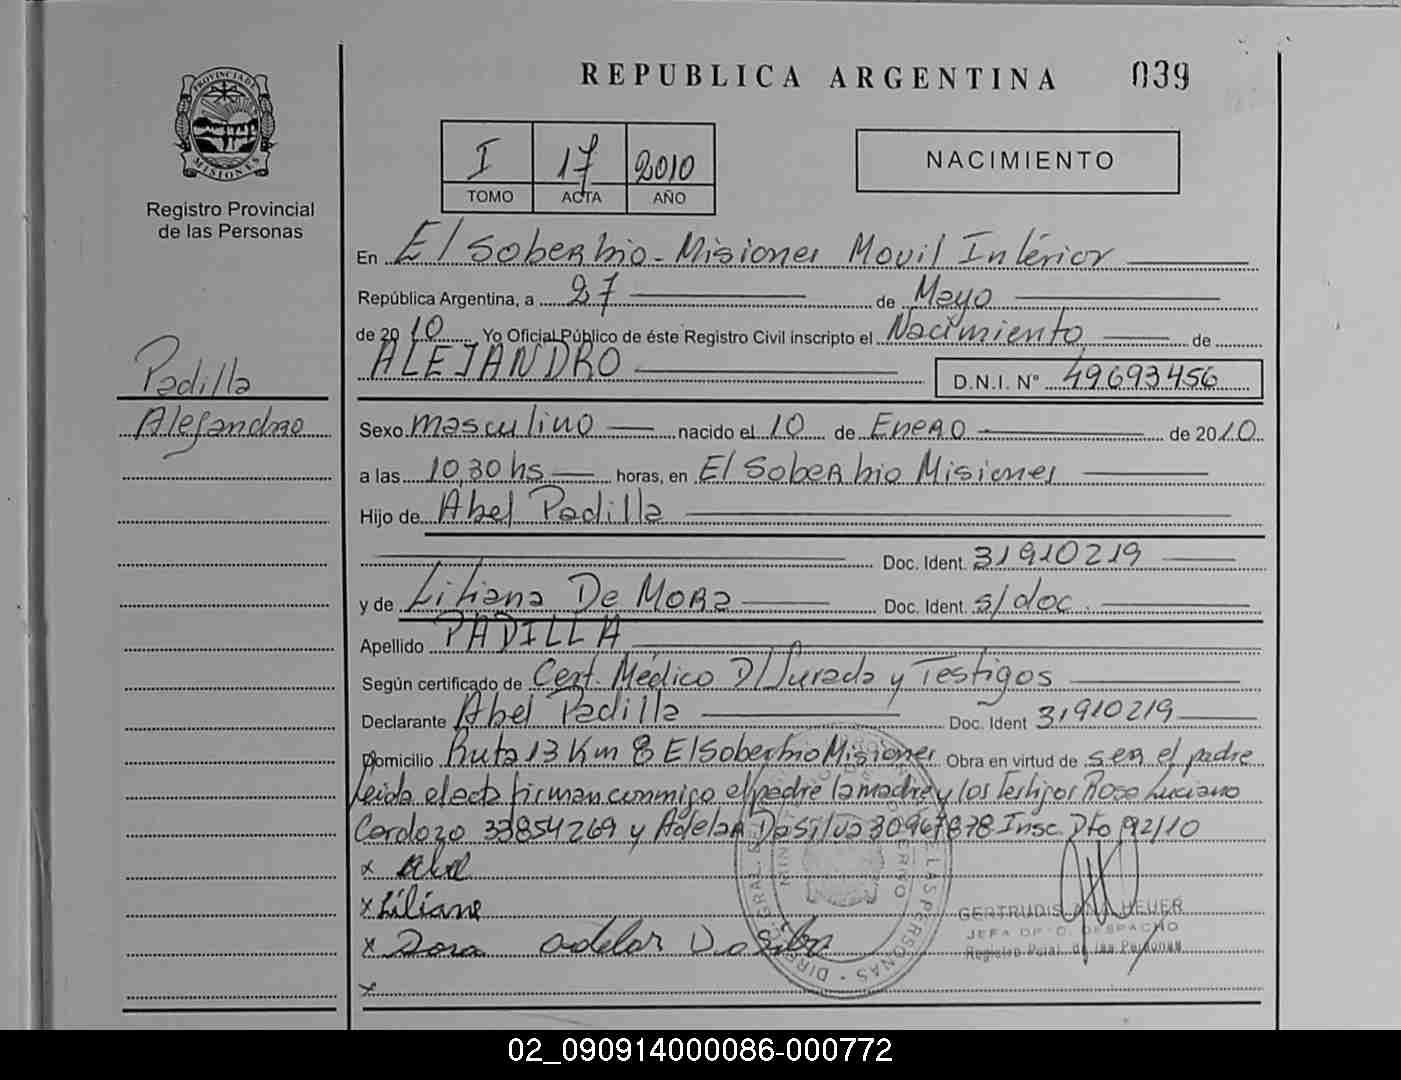 REPUBLICA ARGENTINA 039
PROVINCIA DE MISIONES
Registro Provincial
de las Personas
I 17 2010
TOMO ACTA AÑO
NACIMIENTO
En El Soberbio - Misiones Movil Interior
República Argentina, a 27 de Mayo
de 2010 Yo Oficial Público de éste Registro Civil inscripto el Nacimiento de
ALEJANDRO D.N.I. N° 49693456
Padilla
Alejandro
Sexo masculino nacido el 10 de Enero de 2010
a las 10,30 hs horas, en El Soberbio Misiones
Hijo de Abel Padilla
Doc. Ident. 31910219
y de Liliana De Mora Doc. Ident. s/doc.
Apellido PADILLA
Según certificado de Cert. Médico D/Jurada y Testigos
Declarante Abel Padilla Doc. Ident 31910219
Domicilio Ruta 13 Km 8 El Soberbio Misiones Obra en virtud de ser el padre
leida el acta firman conmigo el padre la madre y los Testigos Rosa Luciano
Cardozo 33854269 y Adelar Da Silva 30967878 Insc. Dto 92/10
x Abel
x Liliane
x Adelar Da Silva
x
GERTRUDIS HEUER
JEFA DPTO. DESPACHO
Registro Pcial. de las Personas
DE LAS PERSONAS
02_090914000086-000772